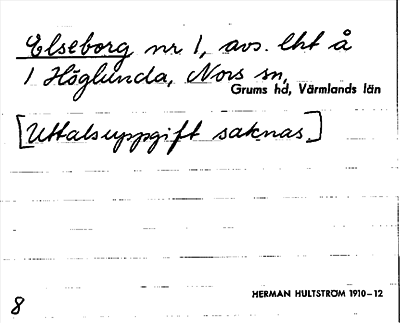 Elseborg nr 1, avs. lht å
1 Höglunda, Nors sn,
Grums hd, Värmlands län
[Uttalsuppgift saknas]
HERMAN HULTSTRÖM 1910–12
8